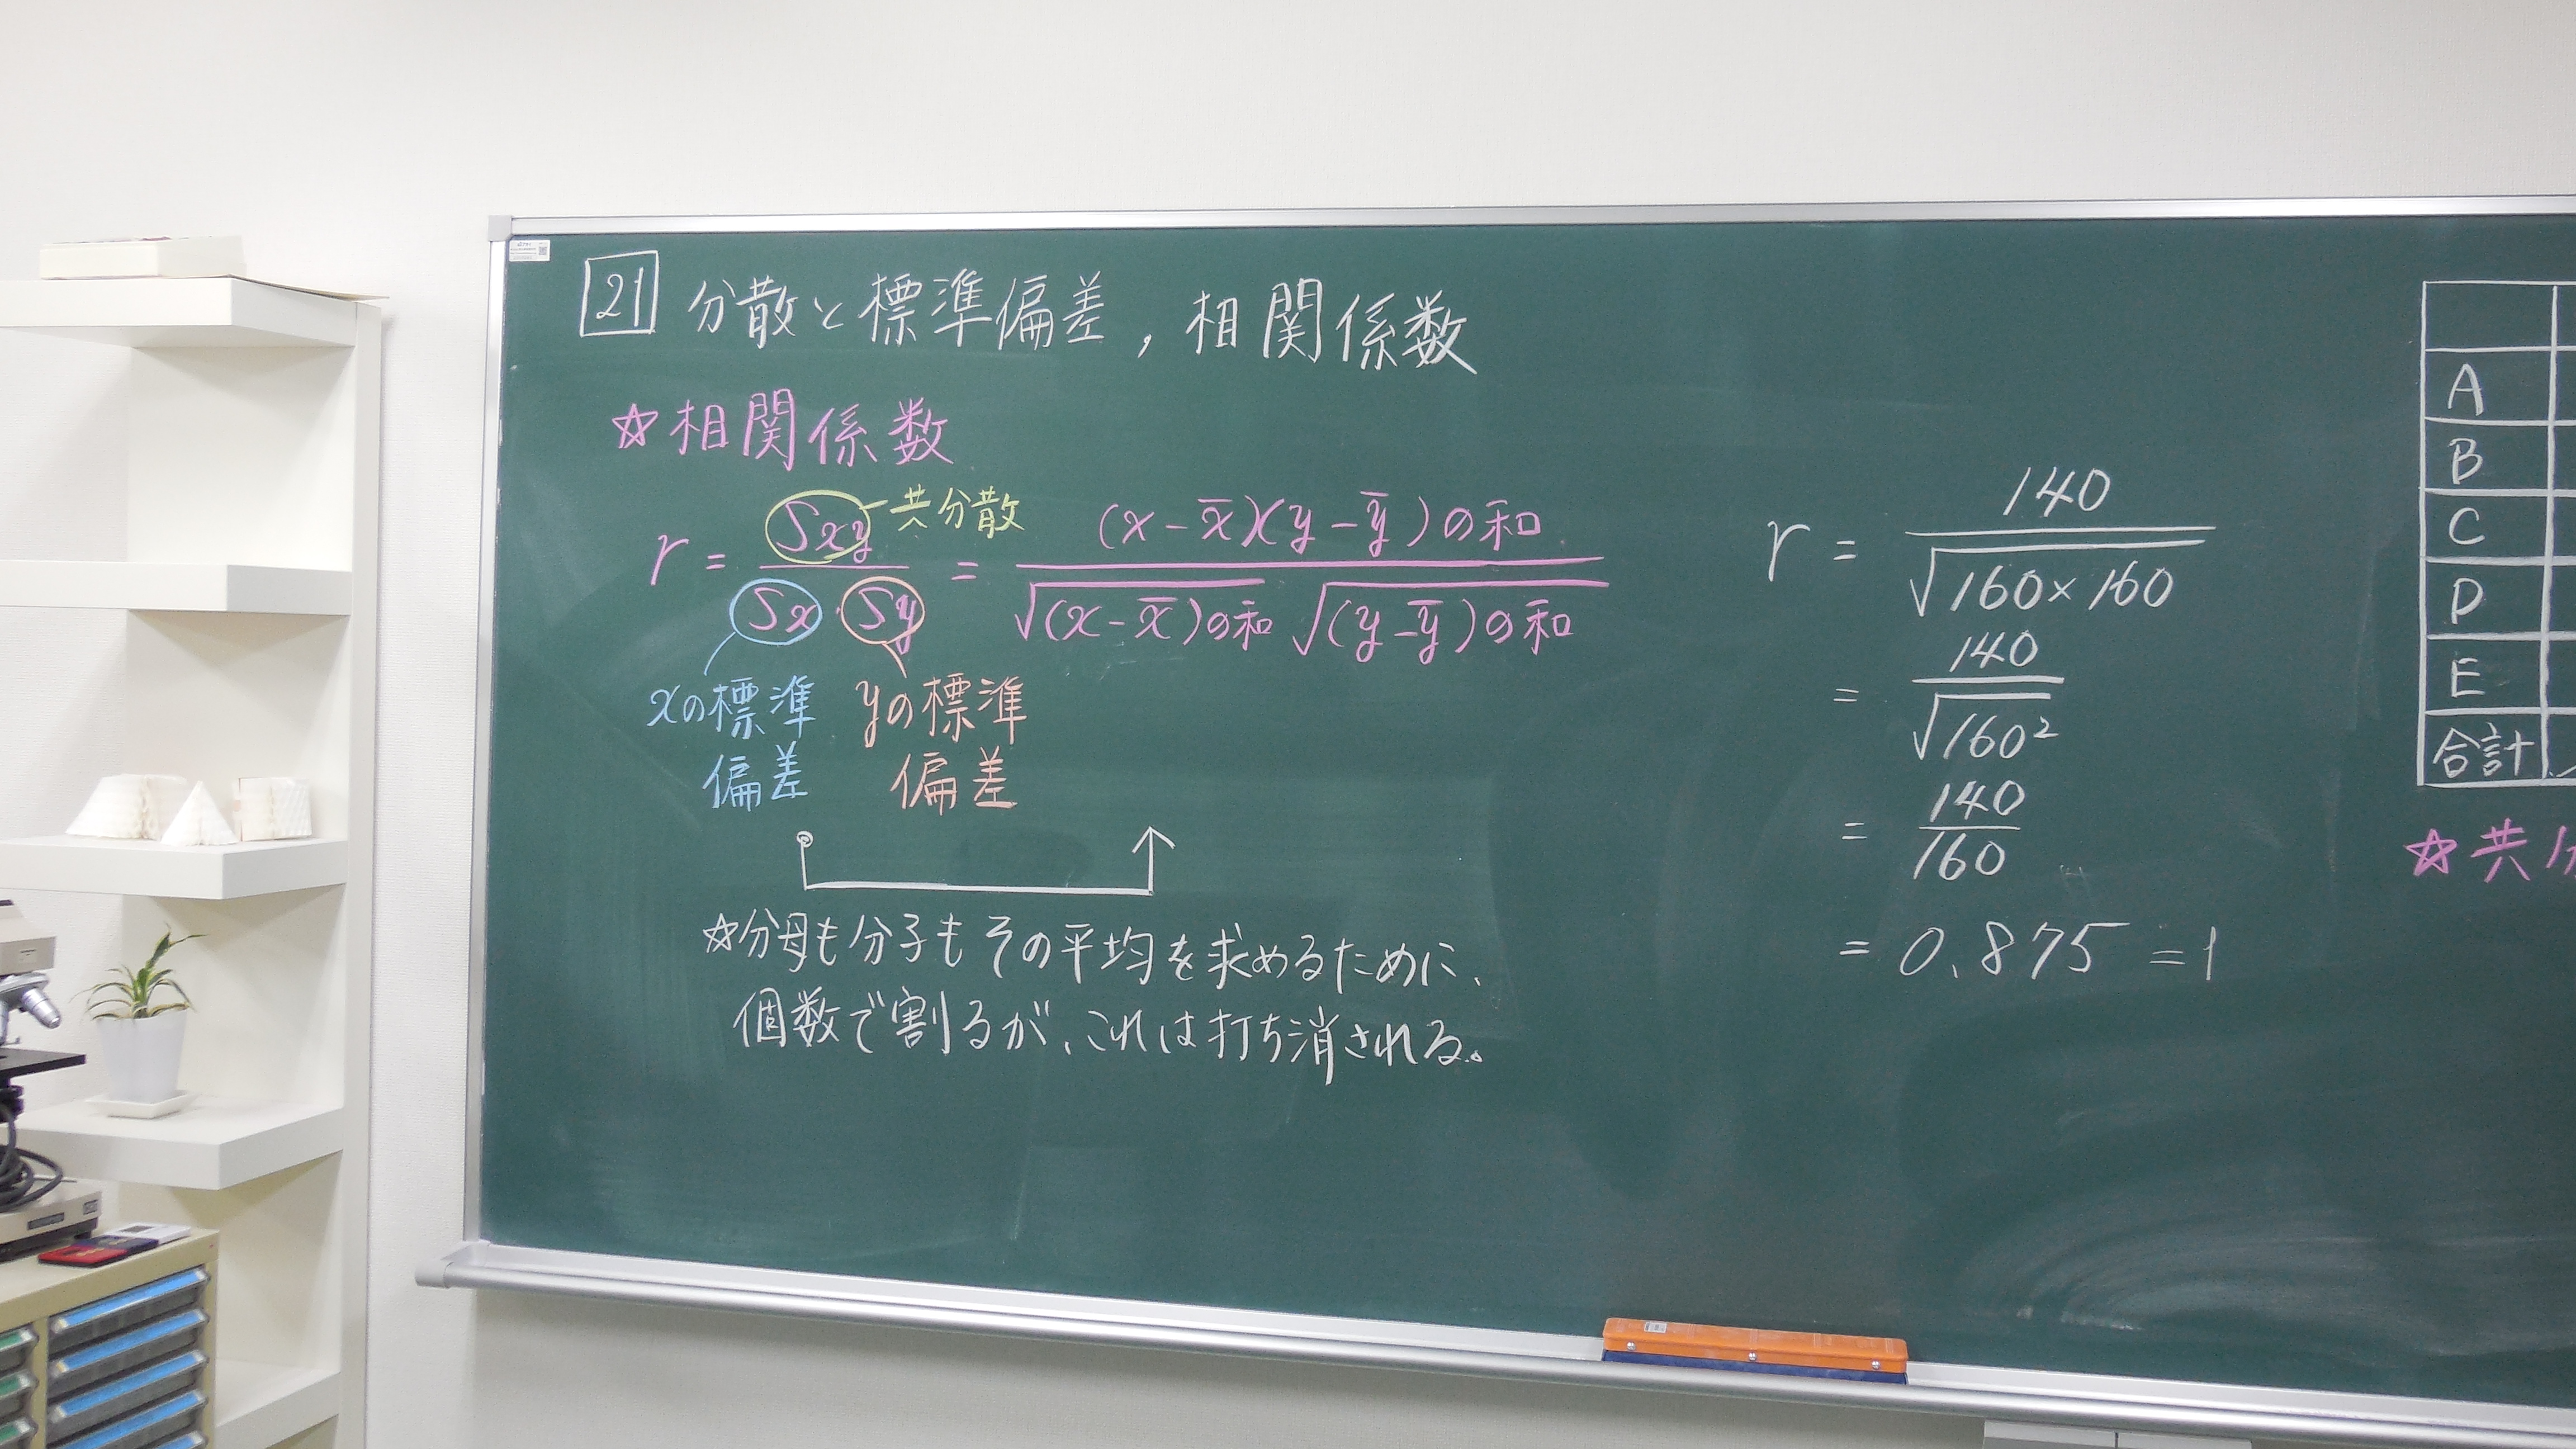 21 分散と標準偏差,相関係数
☆相関係数
r = Sxy / Sx・Sy = (x-x̄)(y-ȳ)の和 / √(x-x̄)の和 √(y-ȳ)の和
共分散
xの標準偏差
yの標準偏差
☆分母も分子もその平均を求めるために、
個数で割るが、これは打ち消される。
r = 140 / √160×160
= 140 / √160²
= 140 / 160
= 0.875 =1
A
B
C
D
E
合計
☆共分